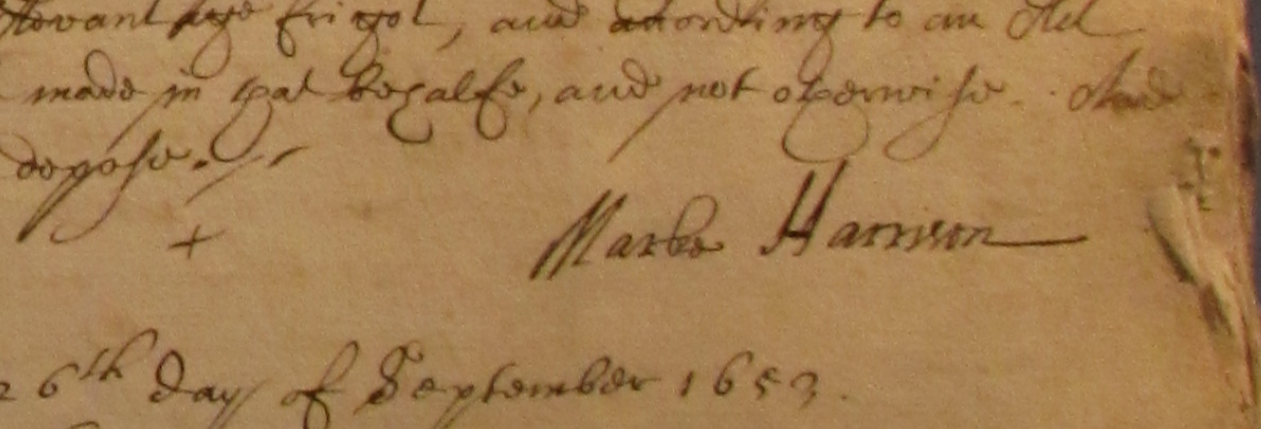 and according to an Act
made in that behalfe, and not otherwise. And
depose.
Marke Harrison
26th day of September 1653.